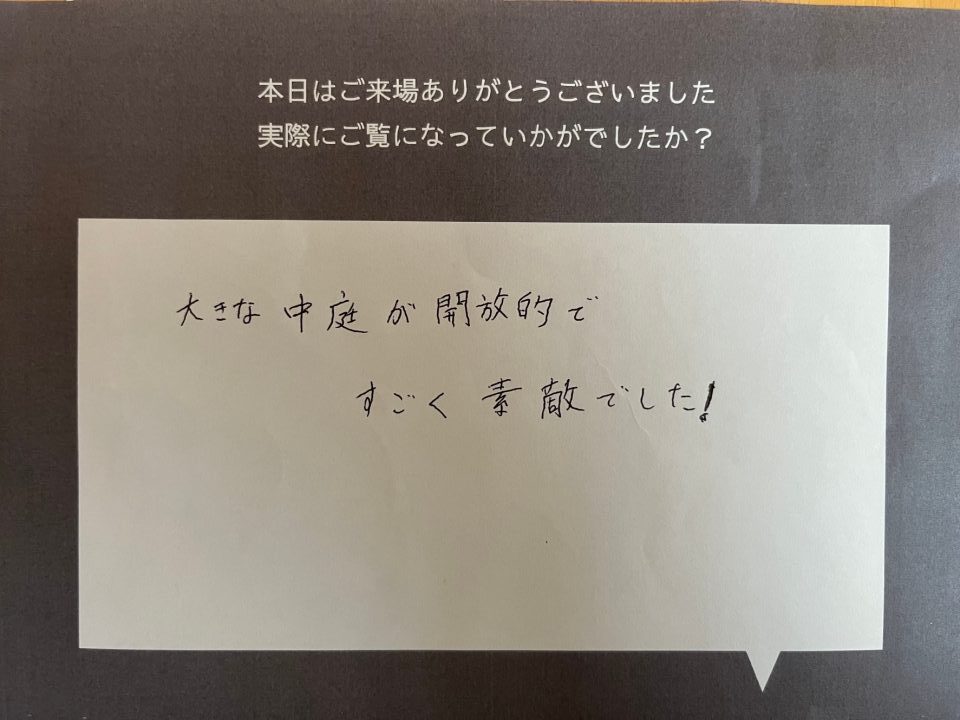 本日はご来場ありがとうございました
実際にご覧になっていかがでしたか？
大きな中庭が開放的で
すごく素敵でした!